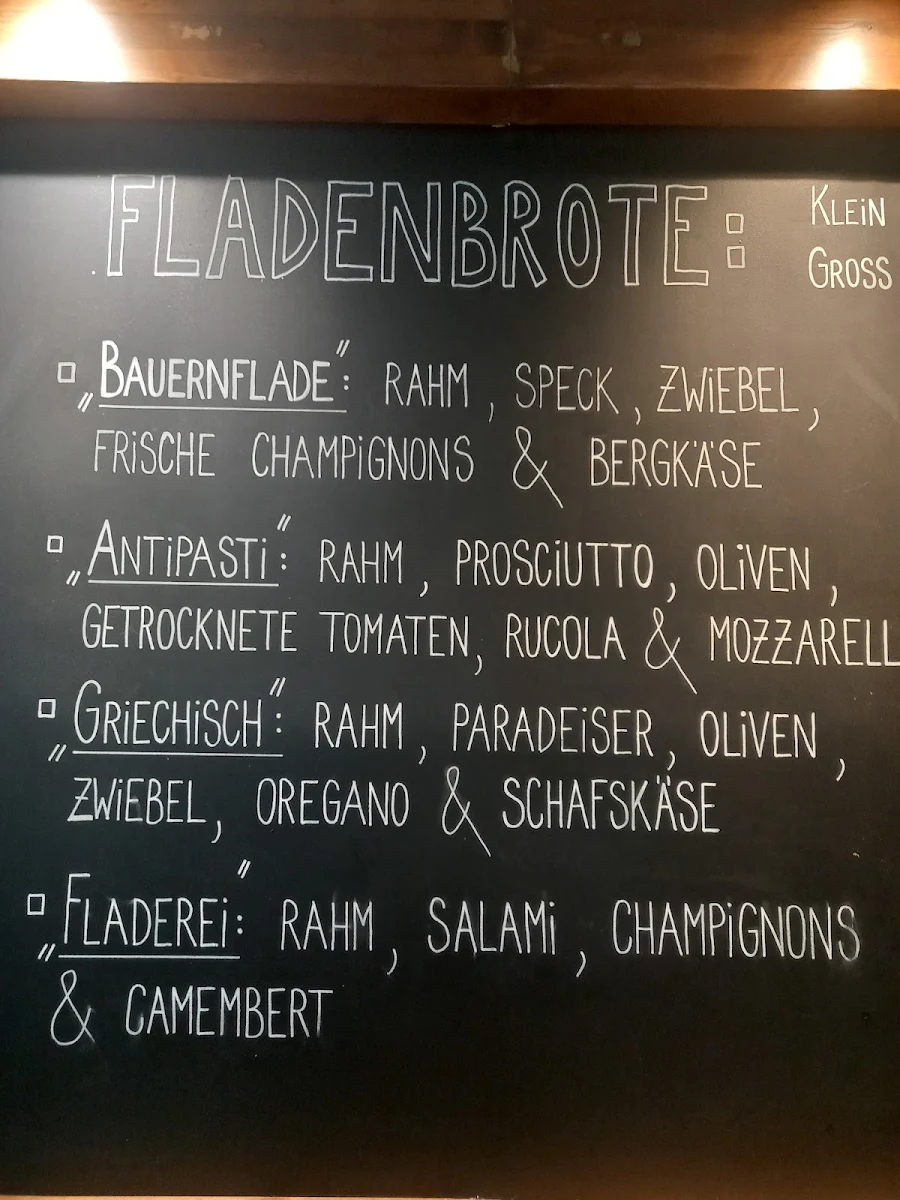 FLADENBROTE:
KLEiN
GROSS
„BAUERNFLADE": RAHM, SPECK, ZWiEBEL,
FRiSCHE CHAMPiGNONS & BERGKÄSE
„ANTiPASTi": RAHM, PROSCiUTTO, OLiVEN,
GETROCKNETE TOMATEN, RUCOLA & MOZZARELL
„GRiECHiSCH": RAHM, PARADEiSER, OLiVEN,
ZWiEBEL, OREGANO & SCHAFSKÄSE
„FLADEREi": RAHM, SALAMi, CHAMPiGNONS
& CAMEMBERT